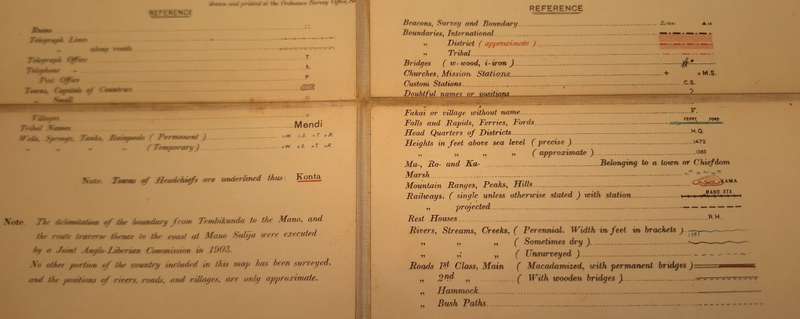 Drawn and printed at the Ordnance Survey Office,
REFERENCE
Ruins
Telegraph Lines
„ along roads
Telegraph Office T
Telephone „
Post Office P
Towns, Capitals of Countries
„ Small
Villages
Tribal Names Mendi
Wells, Springs, Tanks, Rainpools (Permanent) W. S. T. R.
„ „ „ „ (Temporary) W. S. T. R.
Note. Towns of Headchiefs are underlined thus Konta
Note. The delimitation of the boundary from Tembikunda to the Mano, and
the route traverse thence to the coast at Mano Salija were executed
by a Joint Anglo-Liberian Commission in 1903.
No other portion of the country included in this map has been surveyed,
and the positions of rivers, roads, and villages, are only approximate.
REFERENCE
Beacons, Survey and Boundary
Boundaries, International
„ District (approximate)
„ Tribal
Bridges (w-wood, i-iron)
Churches, Mission Stations + M.S.
Custom Stations C.S.
Doubtful names or positions ?
Fakai or village without name V.
Falls and Rapids, Ferries, Fords FERRY FORD
Head Quarters of Districts H.Q.
Heights in feet above sea level (precise) 1472
„ „ „ „ (approximate) 1380
Ma-, Ro- and Ka- Belonging to a town or Chiefdom
Marsh
Mountain Ranges, Peaks, Hills KAMA
Railways. (single unless otherwise stated) with station
„ projected
Rest Houses R.H.
Rivers, Streams, Creeks, (Perennial. Width in feet in brackets)
„ „ „ (Sometimes dry)
„ „ „ (Unsurveyed)
Roads 1st Class, Main (Macadamized, with permanent bridges)
„ 2nd „ (With wooden bridges)
„ Hammock
„ Bush Paths